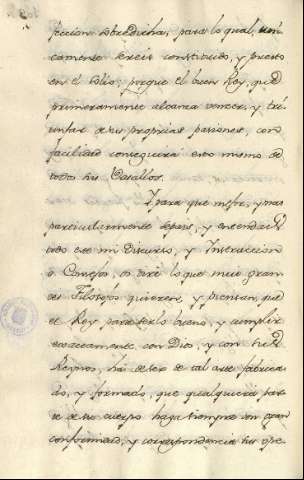 feccion sobredicha, para lo qual, uni-
camente sereis constituido, y puesto
en el Solio; porque el buen Rey, que
primeramente alcanza vencer, y tri-
unfar de sus proprias pasiones, con
facilidad conseguirá esto mismo de
todos sus Vasallos.
Y para que mejor, y mas
particularmente sepais, y entendais
todo este mi Discurso, y Instruccion
o Consejos, os diré lo que mui gran-
des Filosofos quisieron, y piensan, que
el Rey para serlo bueno, y cumplir
exactamente con Dios, y con sus
Reynos, há de ser de tal arte fabrica-
do, y formado, que qualquiera par-
te de su cuerpo haga siempre con gran
conformidad, y correspondencia sus ope-